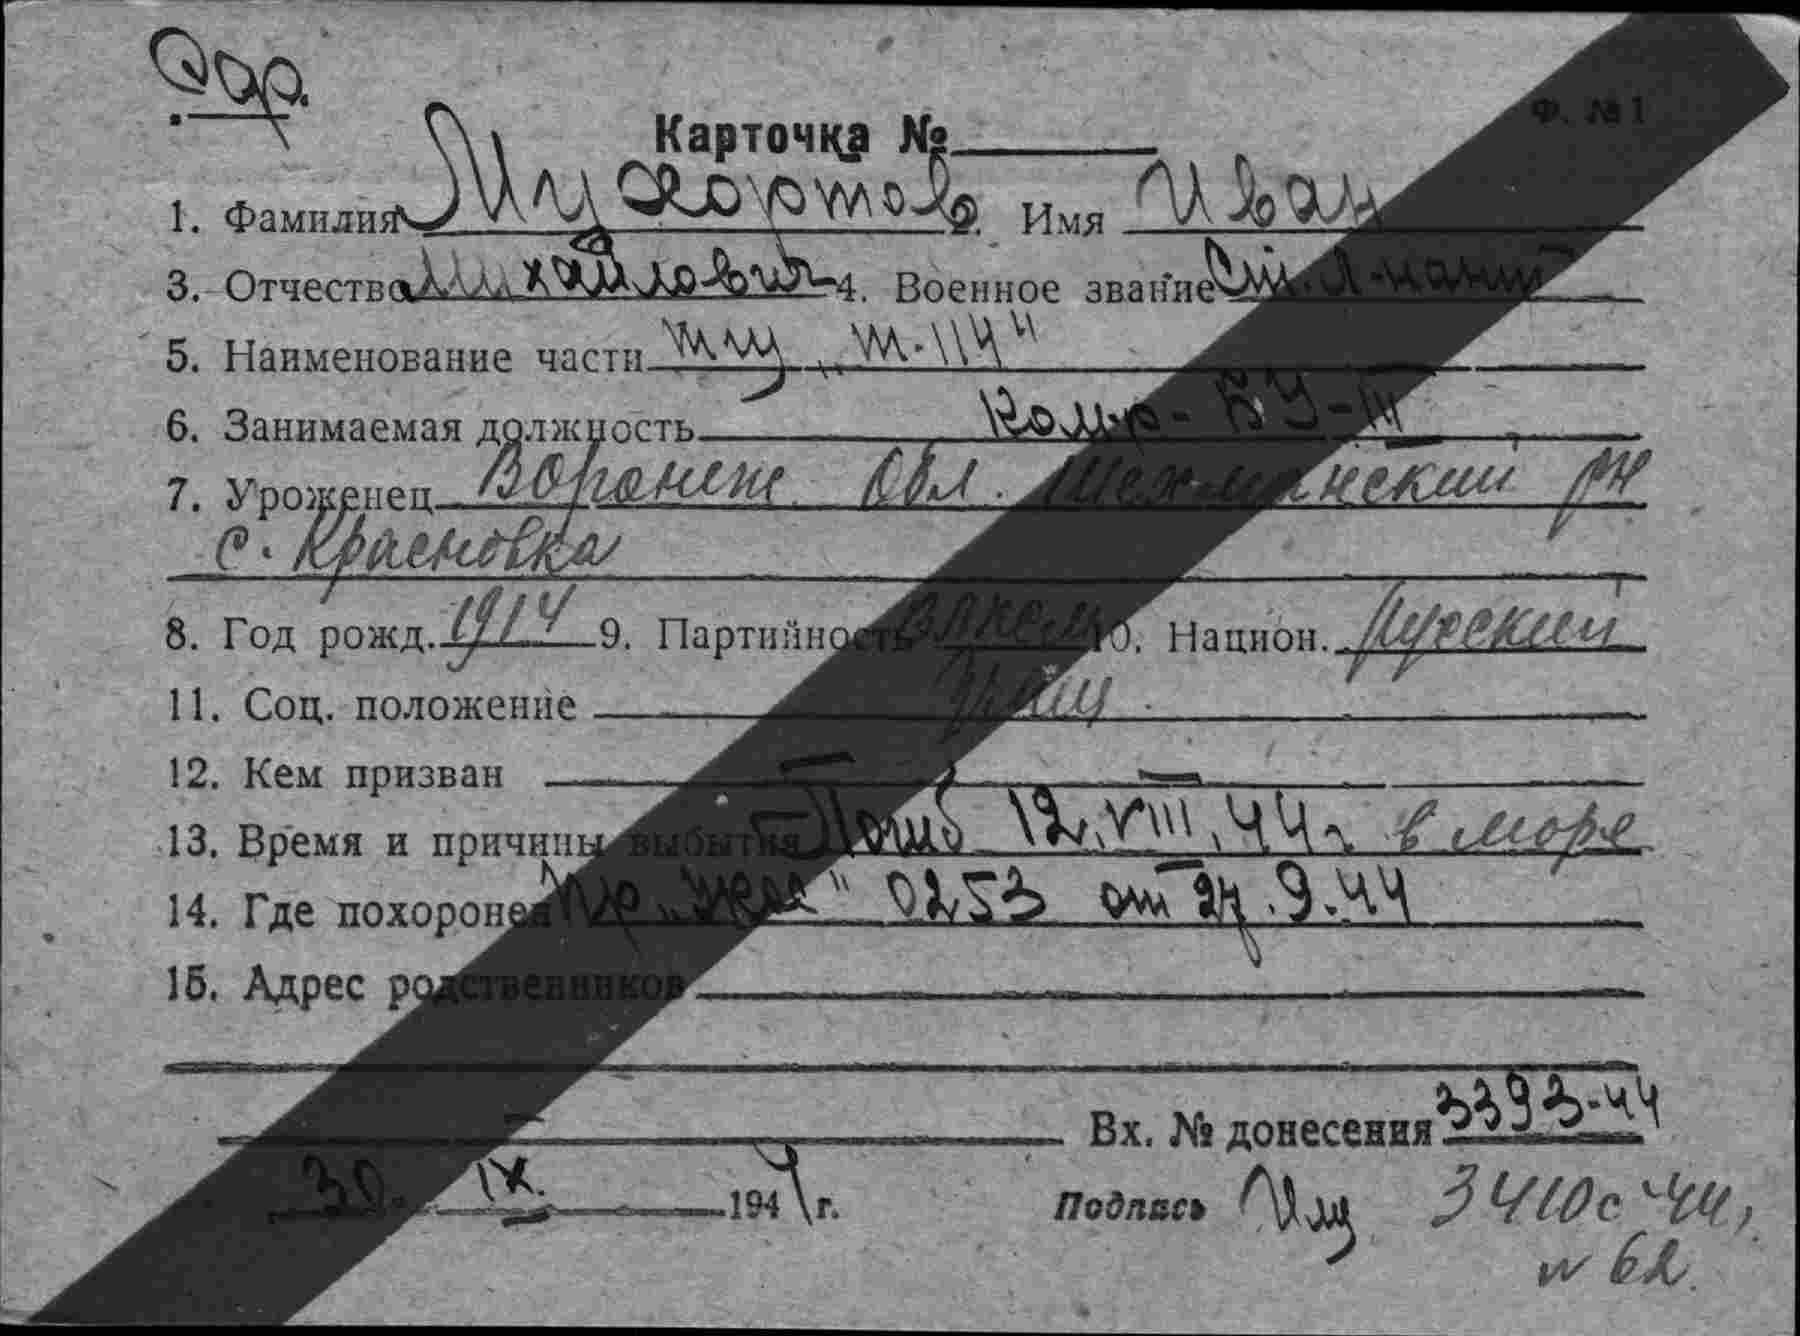 Ф. № 1
Карточка №
1. Фамилия Мухортов 2. Имя Иван
3. Отчество Михайлович 4. Военное звание Ст. л-нант
5. Наименование части тщ „Т-114"
6. Занимаемая должность Ком-р - БЧ-III
7. Уроженец Воронеж. обл. Шехманский рн
с. Красновка
8. Год рожд. 1914 9. Партийность 10. Национ. Русский
11. Соц. положение
12. Кем призван
13. Время и причины выбытия Погиб 12.VIII.44 г в море
14. Где похоронен Пр 0253 от 27.9.44
15. Адрес родственников
Вх. № донесения 3393-44
30. IX. 1944 г. Подпись 3410с-44,
62